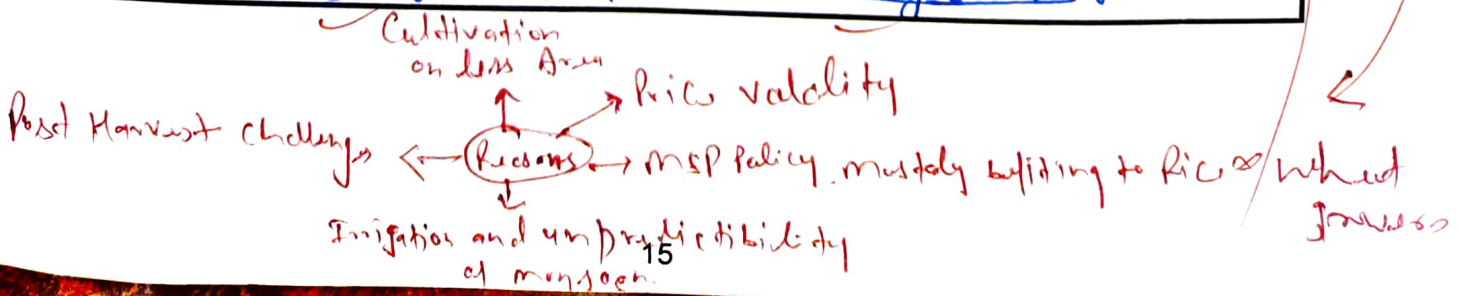 Cultivation
on less Area
Price valality
Post Harvest Challenges
Reasons
MSP Policy mostaly befiting to Rice & Wheat
growers
Irrigation and unpredictibility
of monsoon.
15